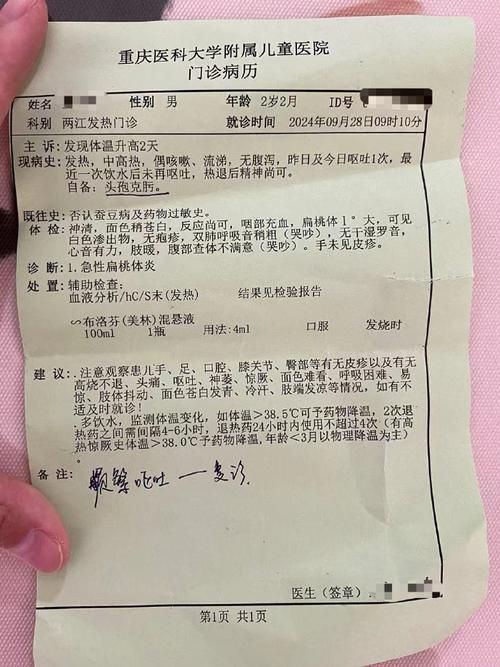 重庆医科大学附属儿童医院
门诊病历
姓名 性别 男 年龄 2岁2月 ID号
科别 两江发热门诊 就诊时间 2024年09月28日09时10分
主 诉:发现体温升高2天
现病史:发热,中高热,偶咳嗽、流涕,无腹泻,昨日及今日呕吐1次,最
近一次饮水后未再呕吐,热退后精神尚可。
自备:头孢克肟。
既往史:否认蚕豆病及药物过敏史。
体 检:神清,面色稍苍白,反应尚可,咽部充血,扁桃体1°大,可见
白色渗出物,无疱疹,双肺呼吸音稍粗(哭吵),无干湿罗音,
心音有力,肢暖,腹部查体不满意(哭吵)。手未见皮疹。
诊 断:1.急性扁桃体炎
处 置:辅助检查:
血液分析/hC/S末(发热) 结果见检验报告
∽布洛芬(美林)混悬液
100ml 1瓶 用法:4ml 口服 发烧时
建 议:.注意观察患儿手、足、口腔、膝关节、臀部等有无皮疹以及有无
高烧不退、头痛、呕吐、神萎、惊厥、面色难看、呼吸困难、易
惊、肢体抖动、面色苍白发青、冷汗、肢端发凉等情况,如有不
适及时就诊!
多饮水,监测体温变化,如体温>38.5℃可予药物降温,2次退
热药之间需间隔4-6小时,退热药24小时内使用不超过4次(有高
热惊厥史体温>38.0℃予药物降温,年龄<3月以物理降温为主)
。
备 注:
频繁呕吐 — 复诊
医生(签章):
第1页 共1页